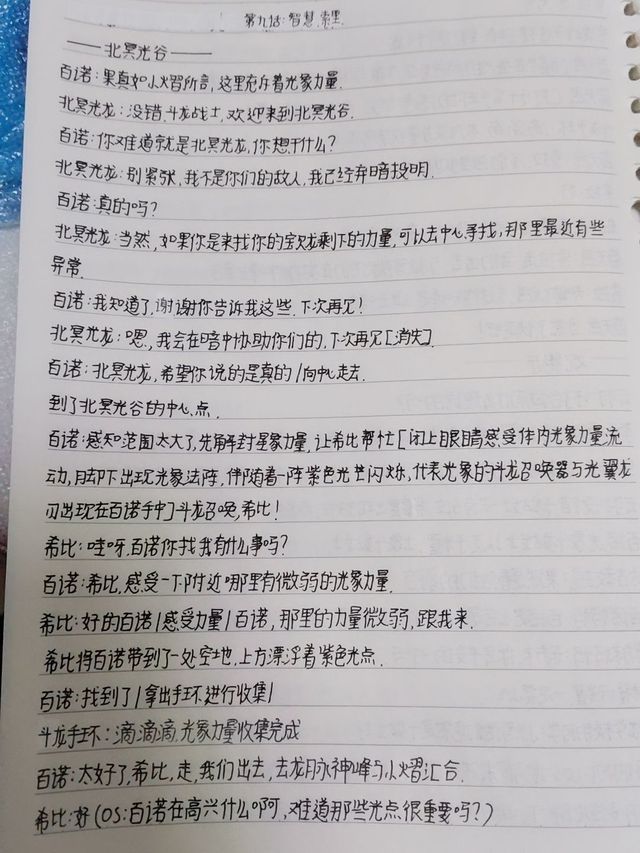 第九话:智慧,索里
——北冥光谷——
百诺:果真如小熠所言,这里充斥着光象力量.
北冥光龙:没错,斗龙战士,欢迎来到北冥光谷.
百诺:你难道就是北冥光龙,你想干什么?
北冥光龙:别紧张,我不是你们的敌人,我已经弃暗投明.
百诺:真的吗?
北冥光龙:当然,如果你是来找你的宝龙剩下的力量,可以去中心寻找,那里最近有些
异常.
百诺:我知道了,谢谢你告诉我这些.下次再见!
北冥光龙:嗯,我会在暗中协助你们的,下次再见[消失]
百诺:北冥光龙,希望你说的是真的/向中心走去.
到了北冥光谷的中心点.
百诺:感知范围太大了,先解封星象力量,让希比帮忙[闭上眼睛感受体内光象力量流
动,脚下出现光象法阵,伴随着一阵紫色光芒闪烁,代表光象的斗龙召唤器与光翼龙
刃出现在百诺手中]斗龙召唤,希比!
希比:哇呀,百诺你找我有什么事吗?
百诺:希比,感受一下附近哪里有微弱的光象力量.
希比:好的百诺/感受力量/百诺,那里的力量微弱,跟我来.
希比将百诺带到了一处空地,上方漂浮着紫色光点.
百诺:找到了/拿出手环进行收集/
斗龙手环:滴,滴滴,光象力量收集完成
百诺:太好了,希比,走,我们出去,去龙脉神峰与小熠汇合.
希比:好(OS:百诺在高兴什么啊,难道那些光点很重要吗?)